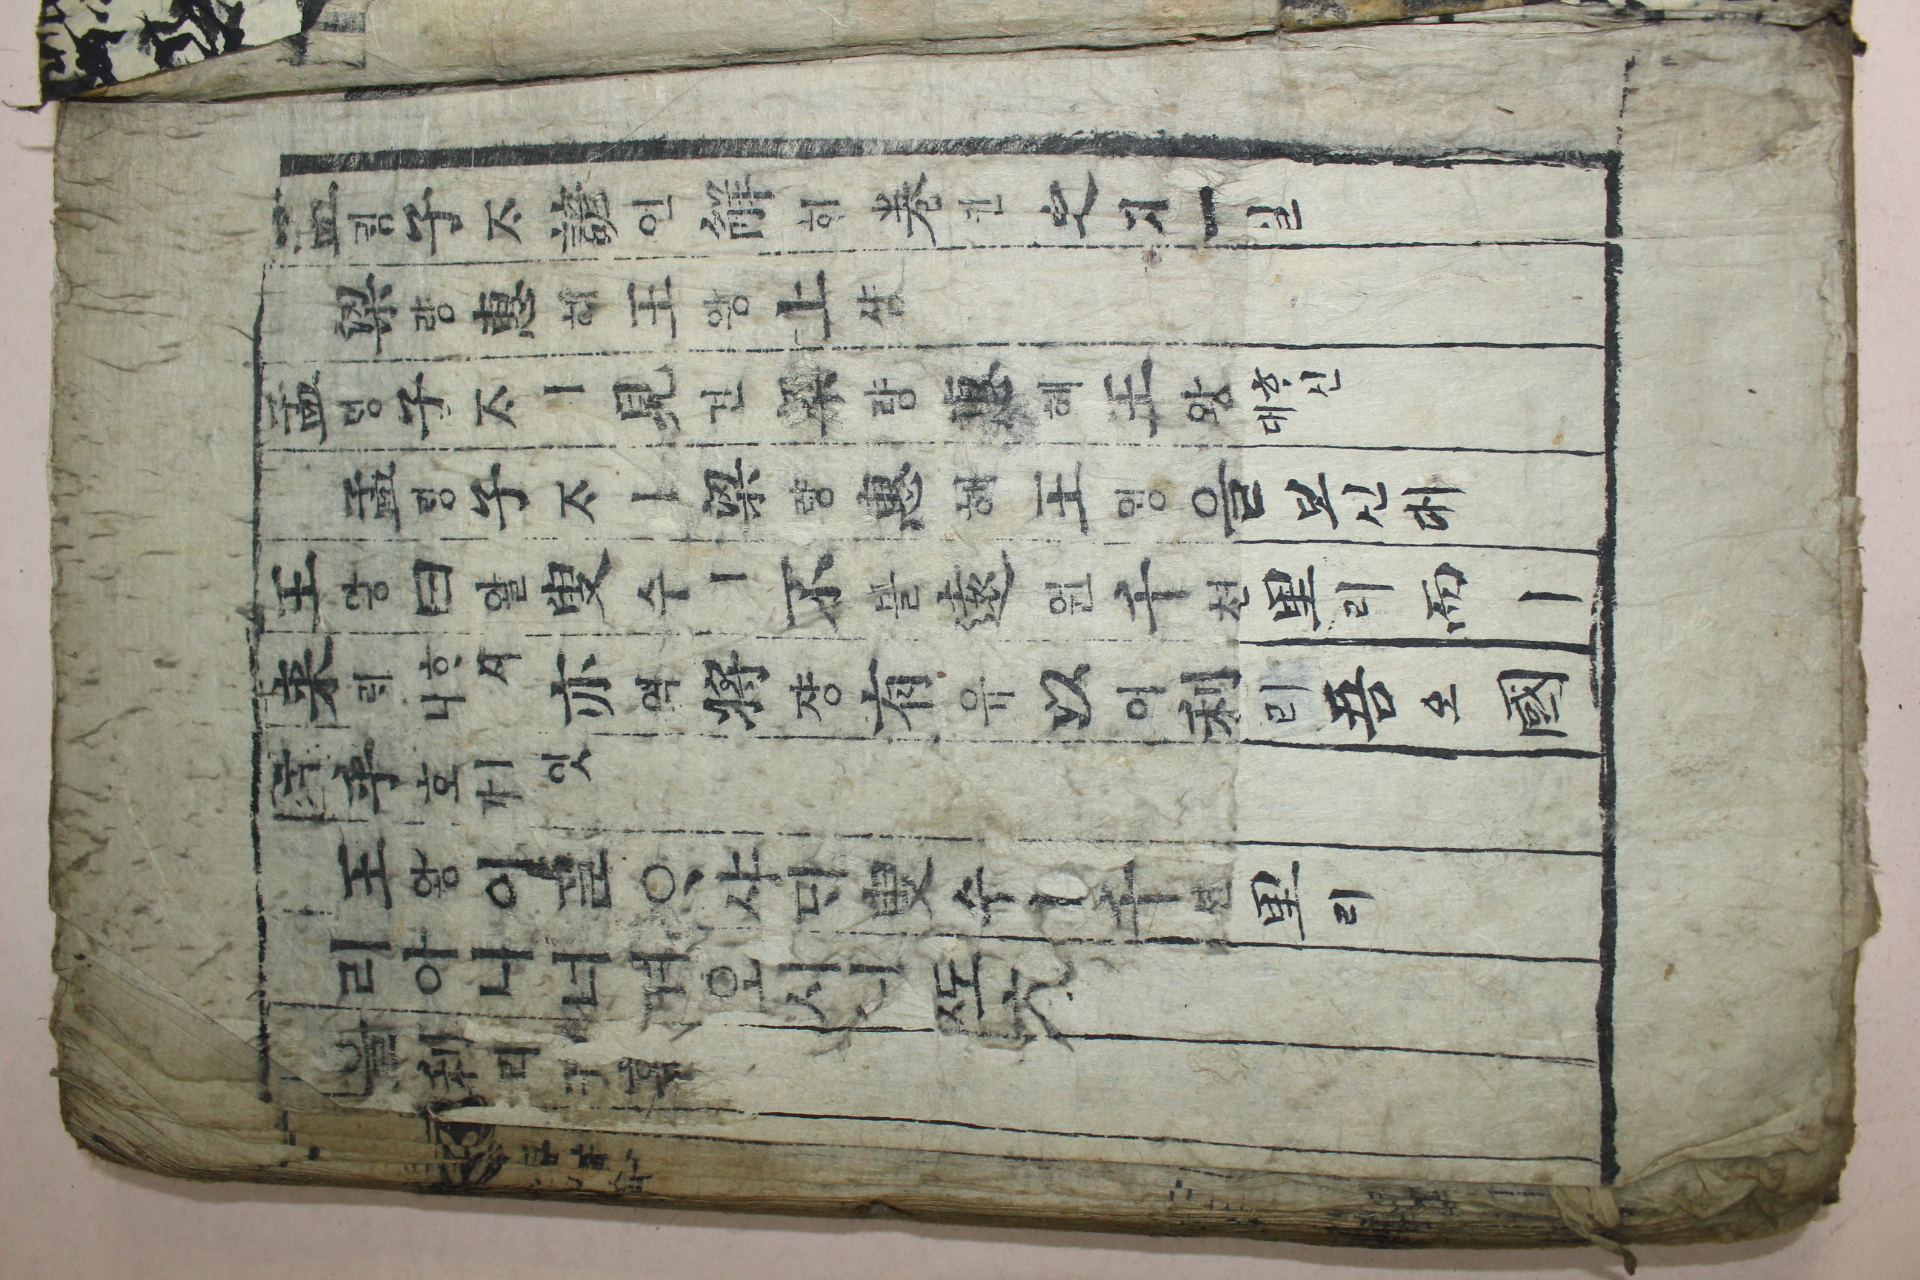 孟ᄆᆡᆼ子ᄌᆞ諺언解ᄒᆡ卷권之지一일
梁량惠혜王왕上샹
孟ᄆᆡᆼ子ᄌᆞㅣ見견梁량惠혜王왕ᄒᆞ신대
孟ᄆᆡᆼ子ᄌᆞㅣ梁량惠혜王왕을보신대
王왕曰왈叟수ㅣ不블遠원千쳔里리而ㅣ
來ᄅᆡᄒᆞ시니亦역將쟝有유以이利리吾오國
국乎호ㅣ잇가
王왕이ᄀᆞᆯᄋᆞ샤ᄃᆡ叟수ㅣ千쳔里리
리아니너겨오시니ᄯᅩ
을利리